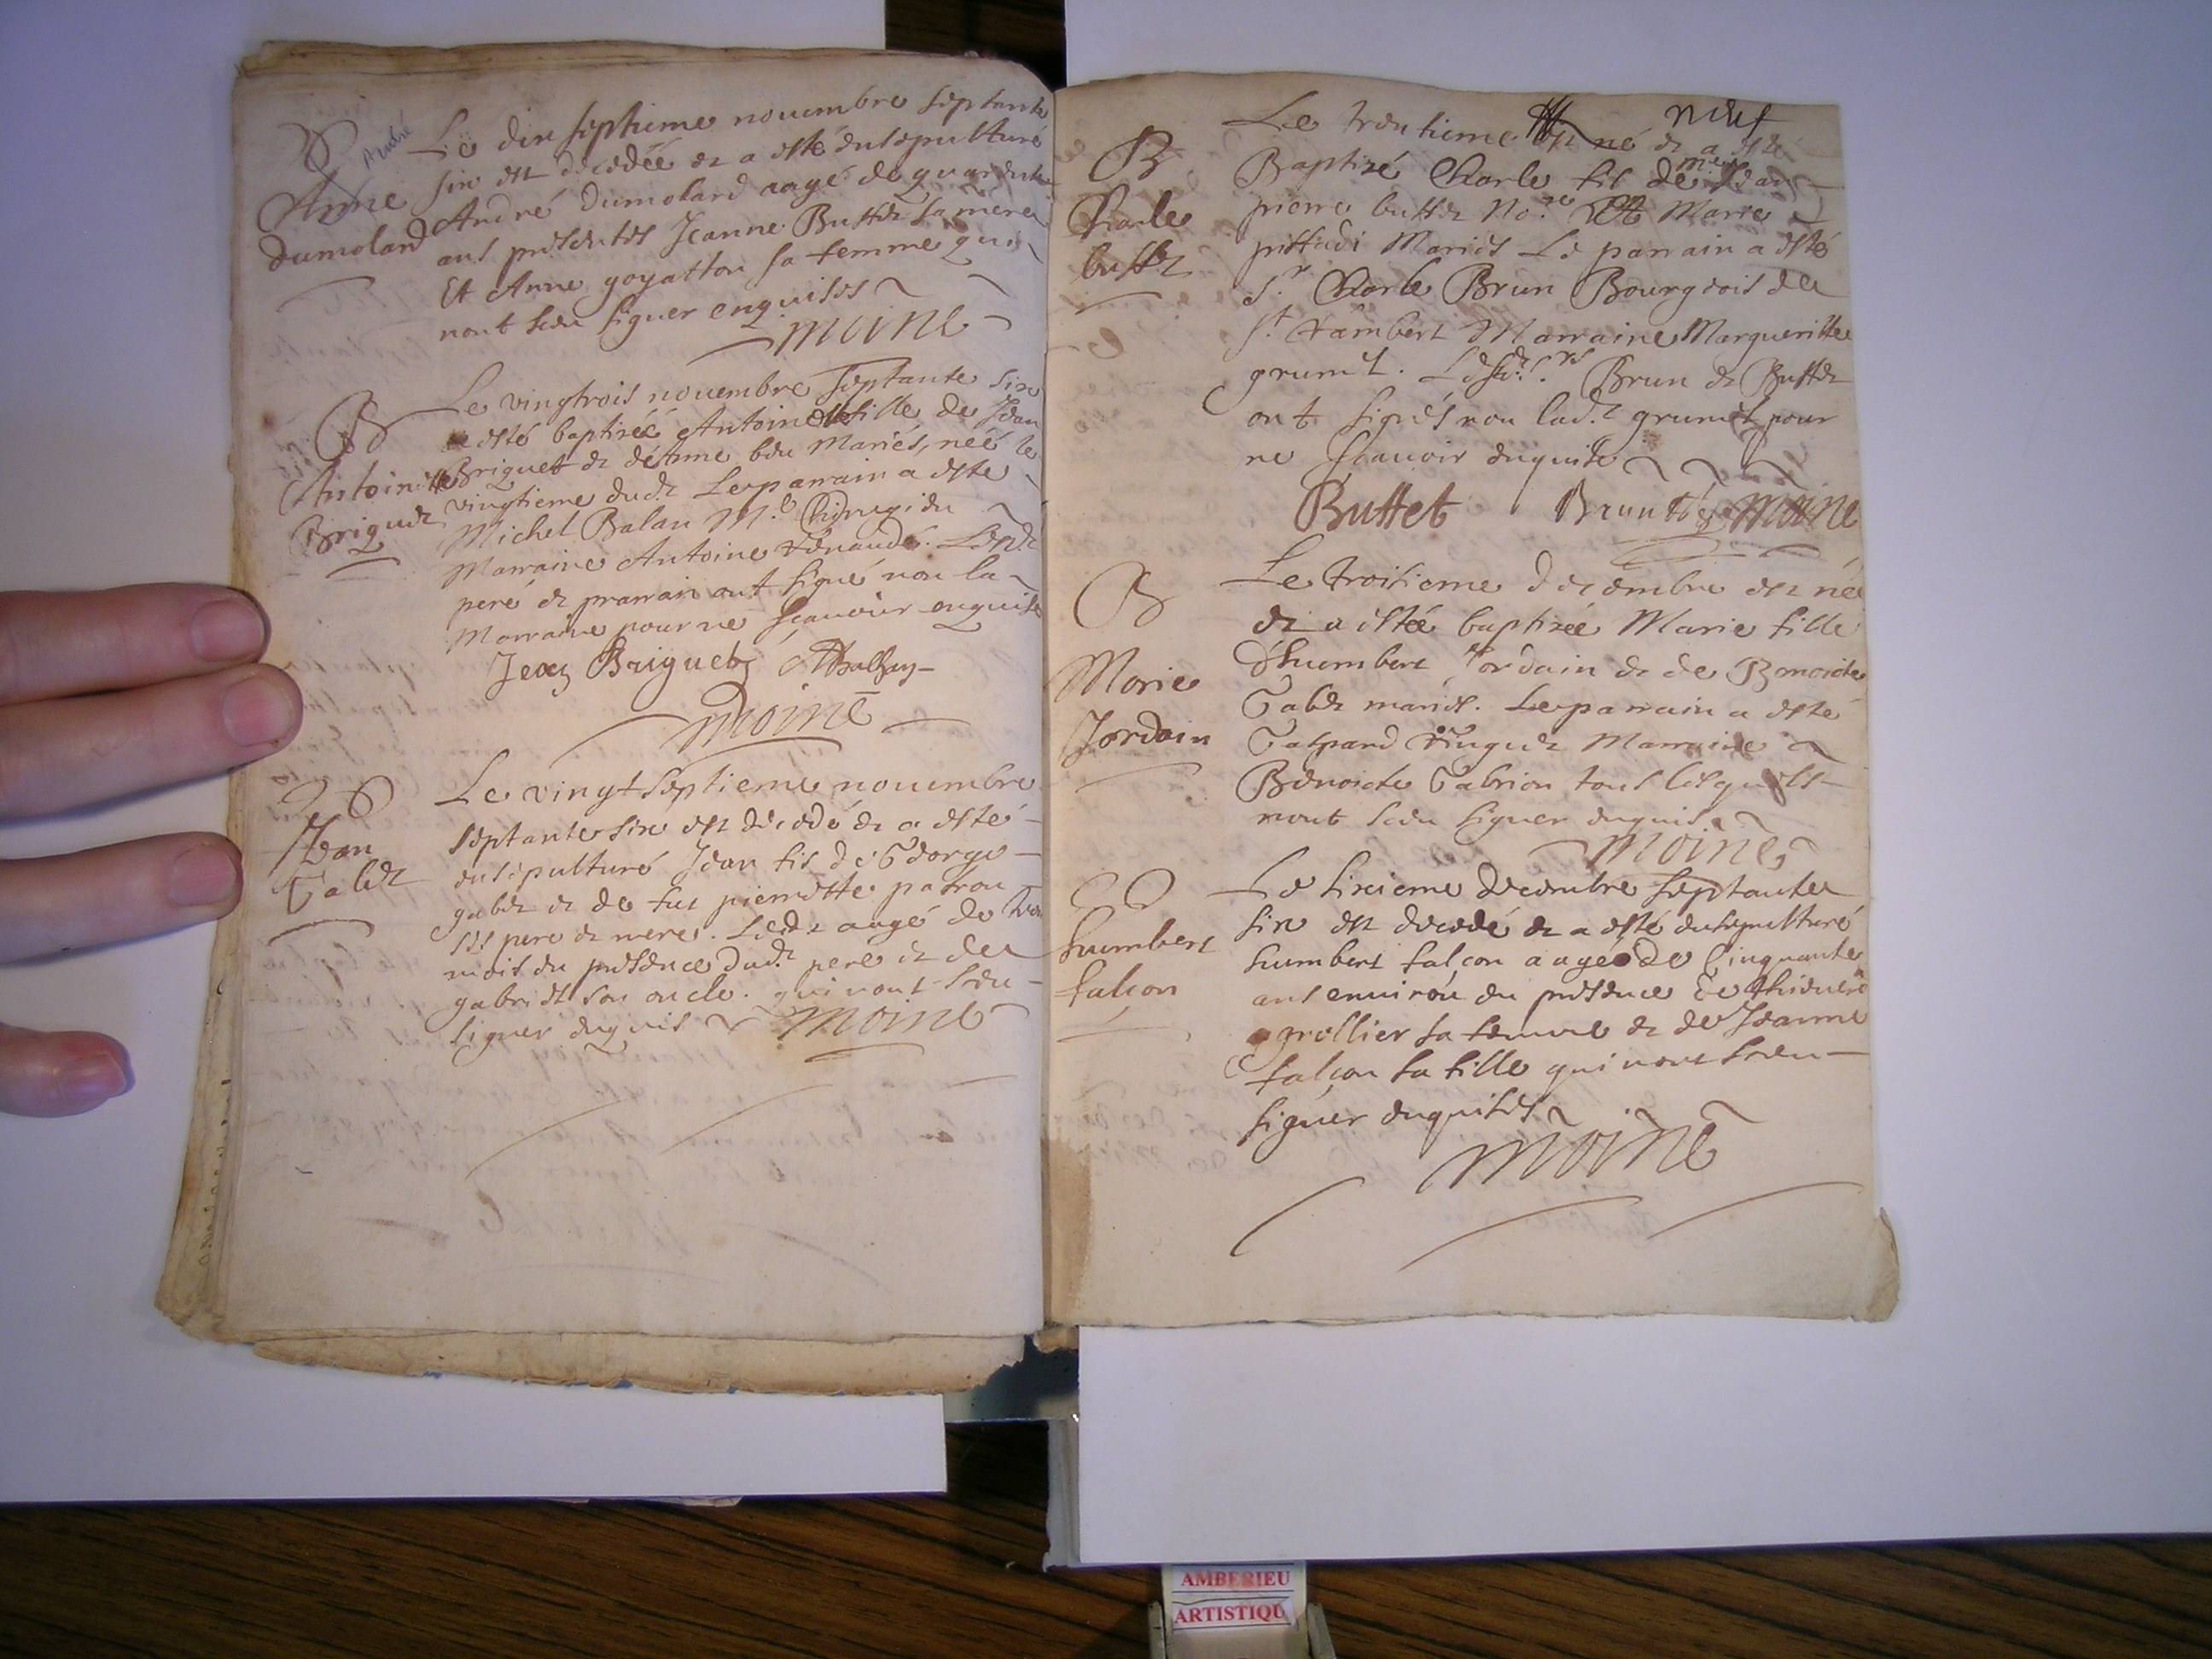 André
Anne
dumoland
Le dix septieme nouembre septante
six est décédée et a esté ensepulturé
André Dumoland aagé de quarente
ans presentes Jeanne Buffet sa mere
Et Anne goyatton sa femme qui
nont sceu signer enquises
Moine
B
Antoinette
Briguet
Le vingtrois nouembre septante six
a esté baptiséé Antoinette fille de Jean
Briguet et de Anne beu Mariés, néé le
vingtieme dud.t Le parrain a este
Michel Balan M.e Chirugien
Marraine Antoine
peré et prarrain ont signé non la
Marraine pour ne scauoir enquise
Jean Briguet
Moine
Jean
Gabet
Le vingt septieme nouembre
septante six est décedé et a esté
ensépulturé Jean fis de George
gabet et de fut pierrette patron
ses pere et mere. Led.t aagé de
mois en présence dud.t peré et de
gabriel son oncle. qui nont sceu
signer enquis
Moine
B
Charle
buffet
Le trentieme est né et a esté neuf
Baptizé Charle fis de M.e Jean
pierre buffet No.re Et Marie
Mariés Le parrain a esté
S.r Charle Brun Bourgeois de
S.t Rambert Marraine Margueritte
grumet. Lesd.ts S.rs Brun et Buffet
ont signés non lad.t grumet pour
ne scauoir enquise
Buffet Brun Moine
B
Marie
Jordain
Le troisieme décembre est néé
et a estéé baptizéé Marie fille
d'humbert Jordain et de Benoite
Gabet mariés. Le parrain a esté
Gaspard Marraine
Benoite Gabrion tous lesquels
nont sceu signer enquis
Moine
humbert
falcon
Le sixieme decembre septante
six est decedé et a esté ensepulturé
humbert falcon aagé de Cinquante
ans enuiron en présence de
grollier sa femme et de Jeanne
falcon sa fille qui nont sceu
signer enquises
Moine
AMBERIEU
ARTISTIQU